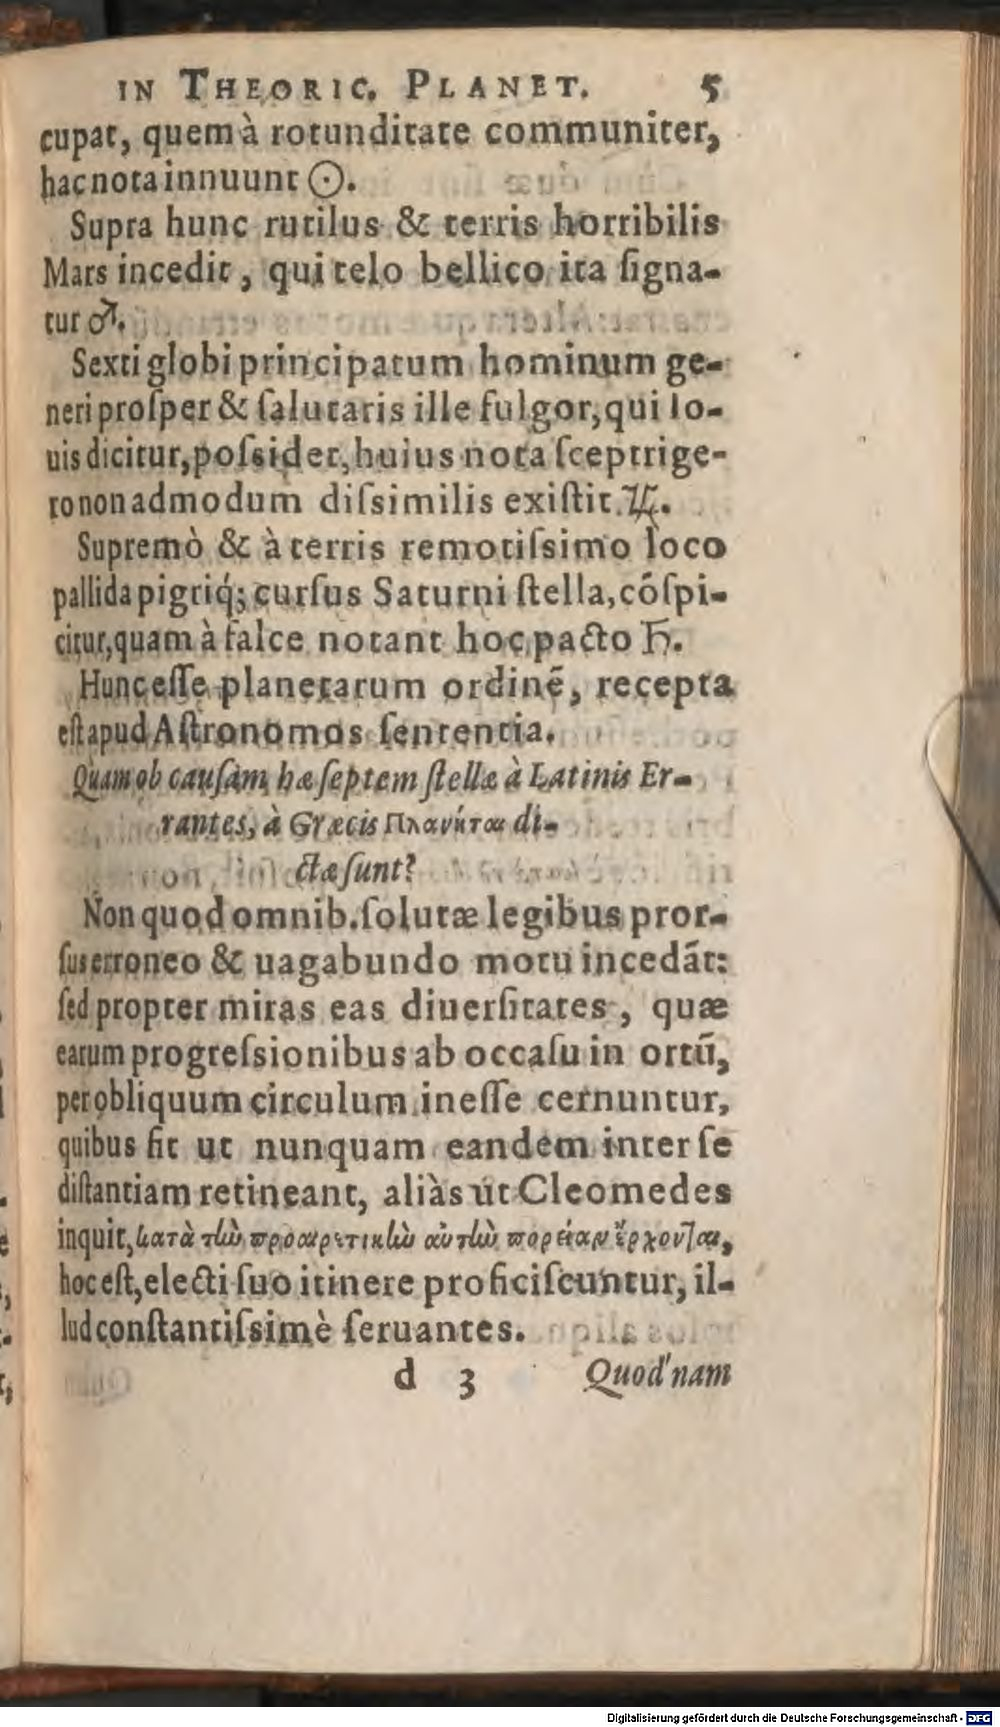 IN THEORIC. PLANET. 5
cupat, quem à rotunditate communiter,
hac nota innuunt ☉.
Supra hunc rutilus & terris horribilis
Mars incedit, qui telo bellico ita ſigna-
tur ♂.
Sexti globi principatum hominum ge-
neri proſper & ſalutaris ille fulgor, qui Io-
uis dicitur, poſsidet, huius nota ſceptrige-
ro non admodum diſsimilis exiſtit ♃.
Supremò & à terris remotiſsimo loco
pallida pigriq́; curſus Saturni ſtella, cõſpi-
citur, quam à falce notant hoc pacto ♄.
Hunc eſſe planetarum ordinẽ, recepta
eſt apud Aſtronomos ſententia.
Quam ob cauſam hæ ſeptem ſtellæ à Latinis Er-
rantes, à Græcis Πλανῆται di-
ctæ ſunt?
Non quod omnib. ſolutæ legibus pror-
ſus erroneo & uagabundo motu incedãt:
ſed propter miras eas diuerſitates, quæ
earum progreſsionibus ab occaſu in ortũ,
per obliquum circulum ineſſe cernuntur,
quibus fit ut nunquam eandem inter ſe
diſtantiam retineant, aliàs ut Cleomedes
inquit, κατὰ τὴν προαιρετικὴν αὐτῶν πορείαν ἔρχονται,
hoc eſt, electi ſuo itinere proficiſcuntur, il-
lud conſtantiſsimè ſeruantes.
d 3 Quod'nam
Digitalisierung gefördert durch die Deutsche Forschungsgemeinschaft - DFG